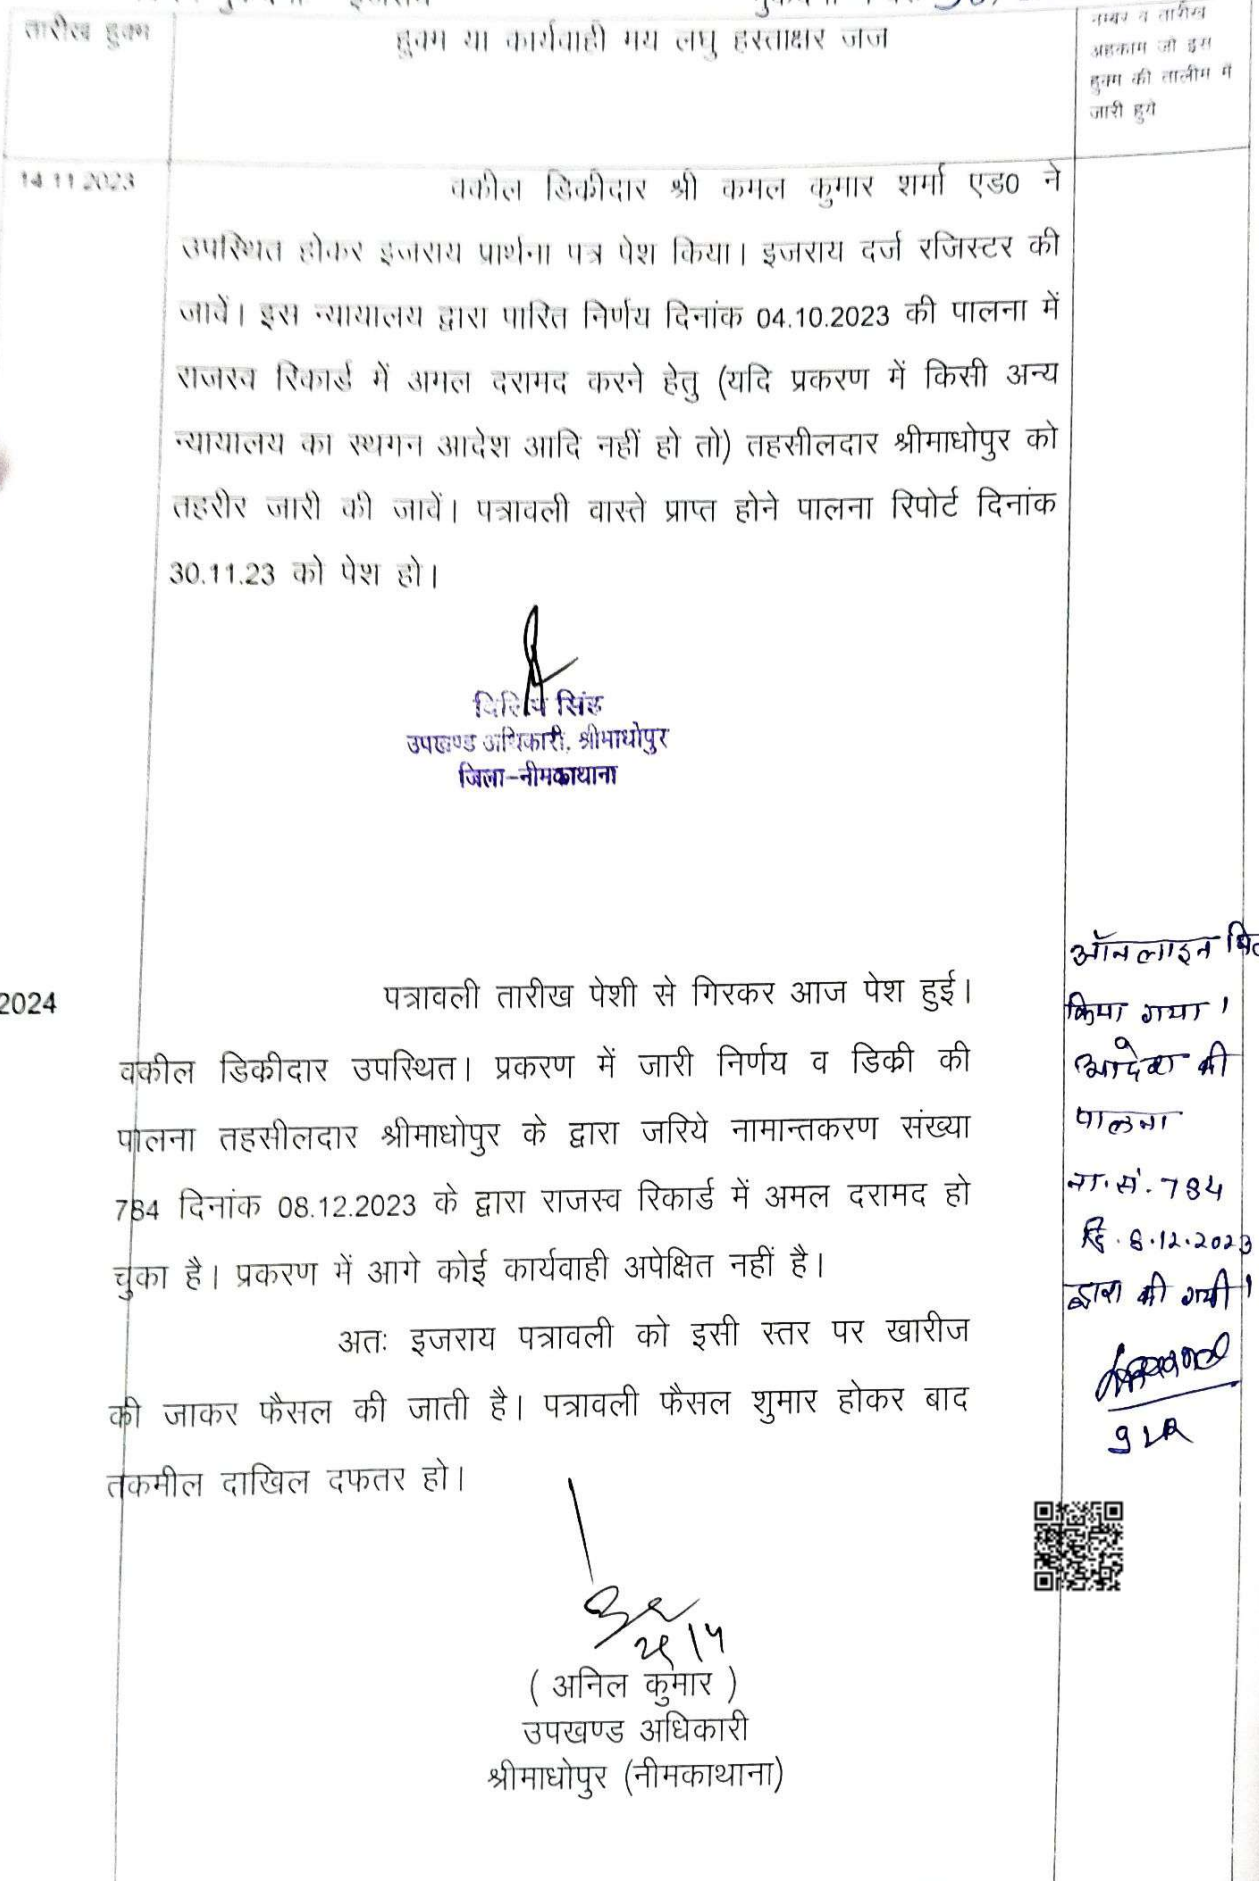 तारीख हुक्म
हुक्म या कार्यवाही मय लघु हस्ताक्षर जज
नम्बर व तारीख
अहकाम जो इस
हुक्म की तालीम में
जारी हुये
14.11.2023
वकील डिकीदार श्री कमल कुमार शर्मा एड0 ने
उपस्थित होकर इजराय प्रार्थना पत्र पेश किया। इजराय दर्ज रजिस्टर की
जावें। इस न्यायालय द्वारा पारित निर्णय दिनांक 04.10.2023 की पालना में
राजस्व रिकार्ड में अमल दरामद करने हेतु (यदि प्रकरण में किसी अन्य
न्यायालय का स्थगन आदेश आदि नहीं हो तो) तहसीलदार श्रीमाधोपुर को
तहरीर जारी की जावें। पत्रावली वास्ते प्राप्त होने पालना रिपोर्ट दिनांक
30.11.23 को पेश हो।
दिलिप सिंह
उपखण्ड अधिकारी, श्रीमाधोपुर
जिला-नीमकाथाना
2024
पत्रावली तारीख पेशी से गिरकर आज पेश हुई।
वकील डिकीदार उपस्थित। प्रकरण में जारी निर्णय व डिकी की
पालना तहसीलदार श्रीमाधोपुर के द्वारा जरिये नामान्तकरण संख्या
784 दिनांक 08.12.2023 के द्वारा राजस्व रिकार्ड में अमल दरामद हो
चुका है। प्रकरण में आगे कोई कार्यवाही अपेक्षित नहीं है।
अतः इजराय पत्रावली को इसी स्तर पर खारीज
की जाकर फैसल की जाती है। पत्रावली फैसल शुमार होकर बाद
तकमील दाखिल दफतर हो।
ऑनलाइन
किया गया।
आदेश की
पालना
ना.सं. 784
दि. 8.12.2023
द्वारा की गयी।
( अनिल कुमार )
उपखण्ड अधिकारी
श्रीमाधोपुर (नीमकाथाना)